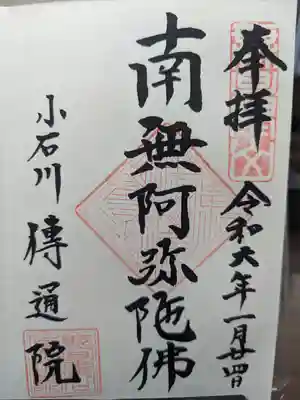 奉拝
令和六年一月廿四日
南無阿弥陀佛
小石川 傳通院